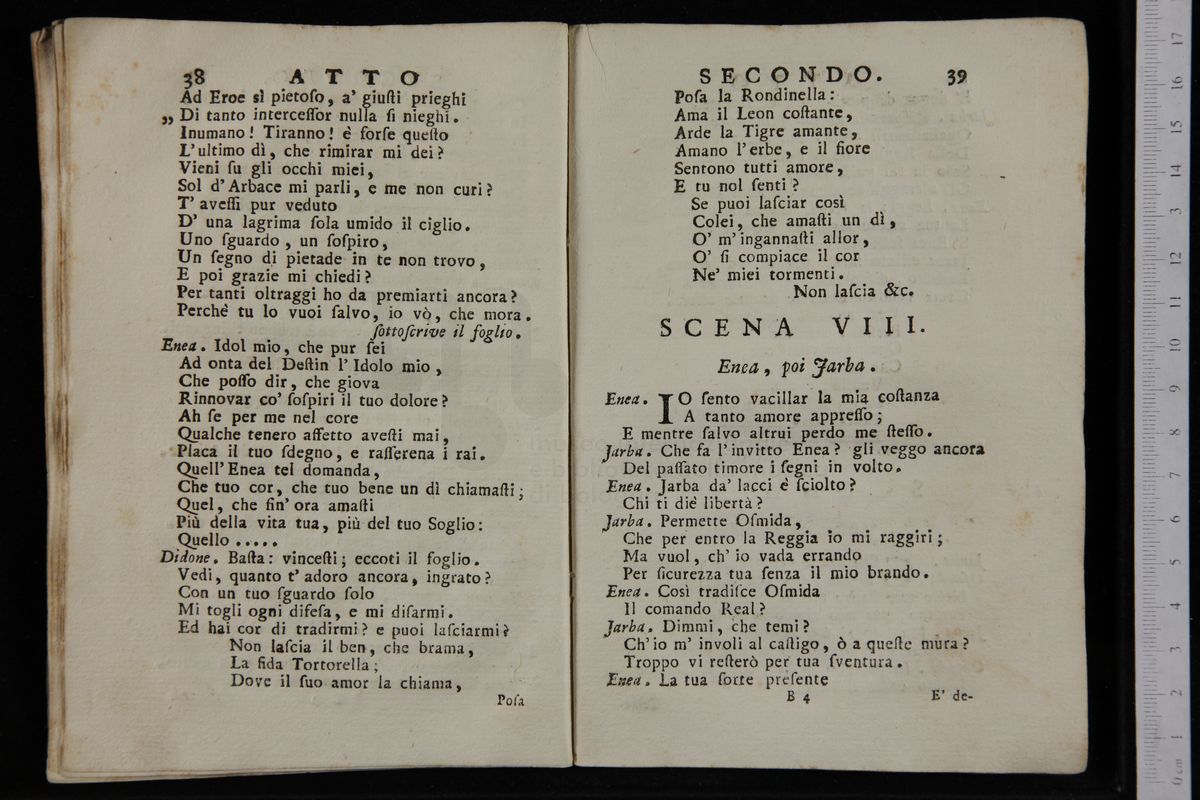 38 ATTO
Ad Eroe sì pietoſo, a' giuſti prieghi
„ Di tanto interceſſor nulla ſi nieghi.
Inumano! Tiranno! è forſe queſto
L'ultimo dì, che rimirar mi dei?
Vieni ſu gli occhi miei,
Sol d'Arbace mi parli, e me non curi?
T' aveſſi pur veduto
D' una lagrima ſola umido il ciglio.
Uno ſguardo, un ſoſpiro,
Un ſegno di pietade in te non trovo,
E poi grazie mi chiedi?
Per tanti oltraggi ho da premiarti ancora?
Perchè tu lo vuoi ſalvo, io vò, che mora.
ſottoſcrive il foglio.
Enea. Idol mio, che pur ſei
Ad onta del Deſtin l'Idolo mio,
Che poſſo dir, che giova
Rinnovar co' ſoſpiri il tuo dolore?
Ah ſe per me nel core
Qualche tenero affetto aveſti mai,
Placa il tuo ſdegno, e raſſerena i rai.
Quell'Enea tel domanda,
Che tuo cor, che tuo bene un dì chiamaſti;
Quel, che ſin' ora amaſti
Più della vita tua, più del tuo Soglio:
Quello .....
Didone. Baſta: vinceſti; eccoti il foglio.
Vedi, quanto t' adoro ancora, ingrato?
Con un tuo ſguardo ſolo
Mi togli ogni difeſa, e mi diſarmi.
Ed hai cor di tradirmi? e puoi laſciarmi?
Non laſcia il ben, che brama,
La fida Tortorella;
Dove il ſuo amor la chiama,
Poſa
SECONDO. 39
Poſa la Rondinella:
Ama il Leon coſtante,
Arde la Tigre amante,
Amano l'erbe, e il fiore
Sentono tutti amore,
E tu nol ſenti?
Se puoi laſciar così
Colei, che amaſti un dì,
O' m'ingannaſti allor,
O' ſi compiace il cor
Ne' miei tormenti.
Non laſcia &c.
SCENA VIII.
Enea, poi Jarba.
Enea. IO ſento vacillar la mia coſtanza
A tanto amore appreſſo;
E mentre ſalvo altrui perdo me ſteſſo.
Jarba. Che fa l'invitto Enea? gli veggo ancora
Del paſſato timore i ſegni in volto.
Enea. Jarba da' lacci è ſciolto?
Chi ti diè libertà?
Jarba. Permette Oſmida,
Che per entro la Reggia io mi raggiri;
Ma vuol, ch' io vada errando
Per ſicurezza tua ſenza il mio brando.
Enea. Così tradiſce Oſmida
Il comando Real?
Jarba. Dimmi, che temi?
Ch'io m' involi al caſtigo, ò a queſte mura?
Troppo vi reſterò per tua ſventura.
Enea. La tua ſorte preſente
B 4 E' de-